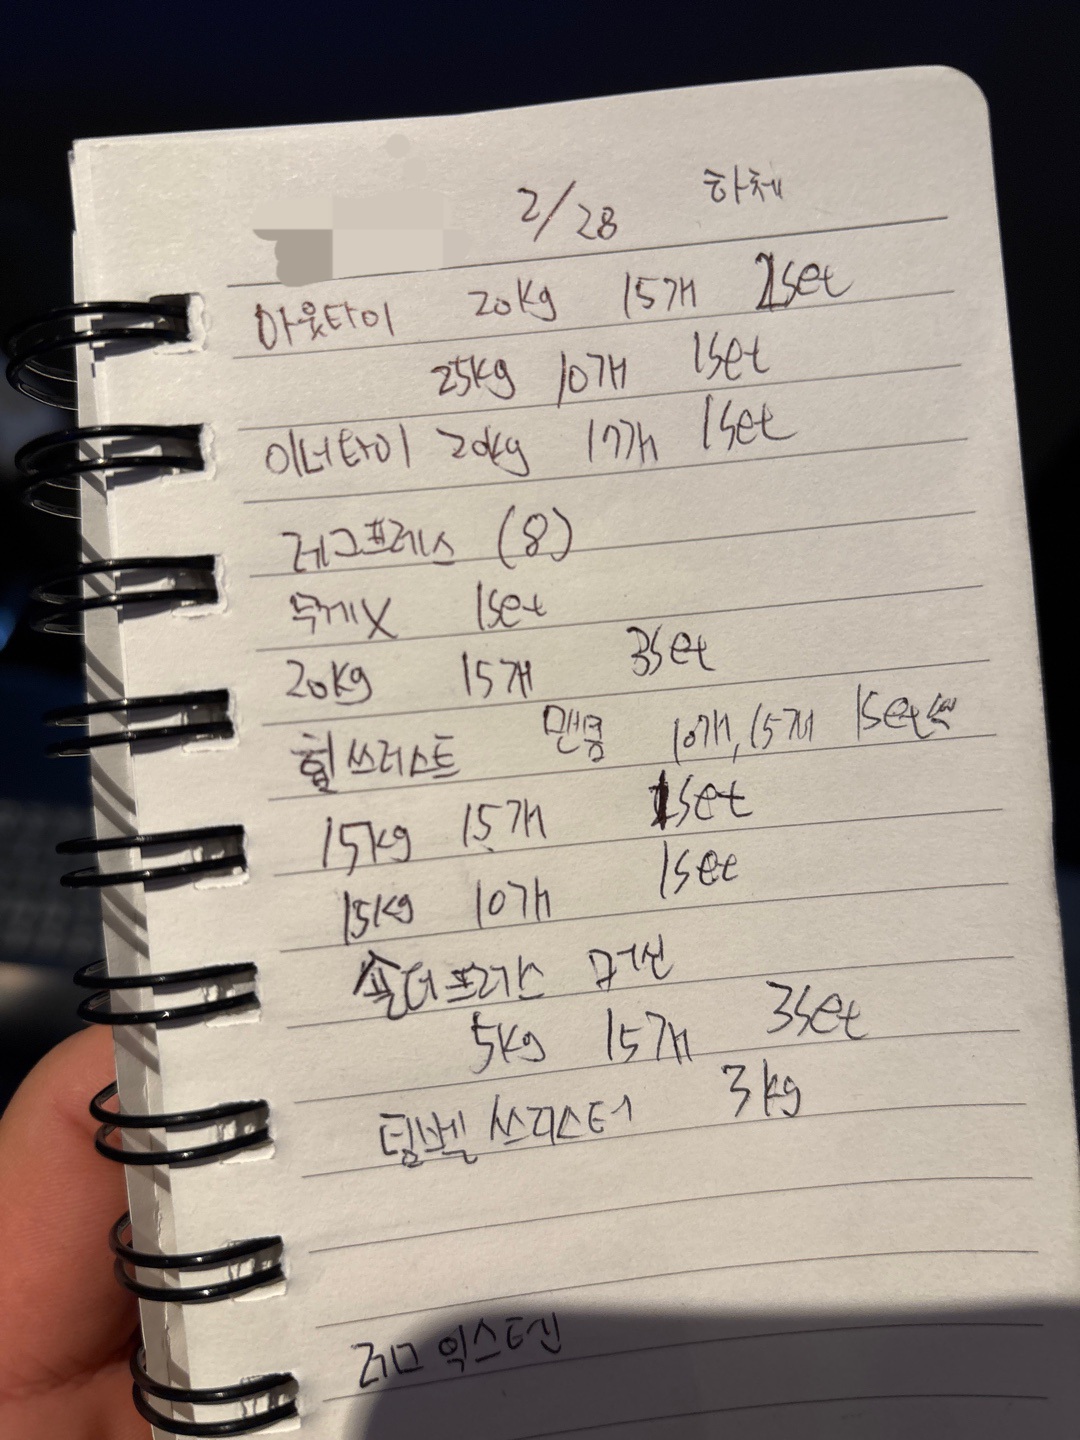 2/28 하체
아웃타이 20kg 15개 1set
25kg 10개 1set
이너타이 20kg 17개 1set
레그프레스 (8)
무게X 1set
20kg 15개 3set
힙쓰러스트 맨몸 10개, 15개 1set씩
15kg 15개 1set
15kg 10개 1set
숄더프레스 머신
5kg 15개 3set
덤벨 3kg
레그 익스텐